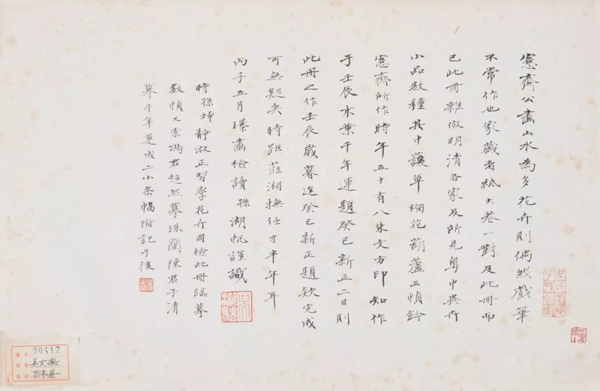 愙齋公畫山水為多花卉則偶然戲筆
不常作也家藏者祇大卷一對及此冊而
已此冊雜倣明清各家及所見粵中異卉
小品數種其中護單桃花葫蘆三幀鈐
愙齋所作時年五十有八朱文方印知作
于壬辰水葉千年運題癸巳新正二日則
此冊之作壬辰歲暮迄癸巳新正題欵完成
可無疑矣時距蒞湘撫任才半年耳
丙子五月曝畫檢讀孫湖帆謹識
時孫婦靜淑正習學花卉因檢此冊臨摹
數幀又索馮君超然摹珠蘭陳君子清
摹千年運成二小条幅附記于後
00417
吳大澂